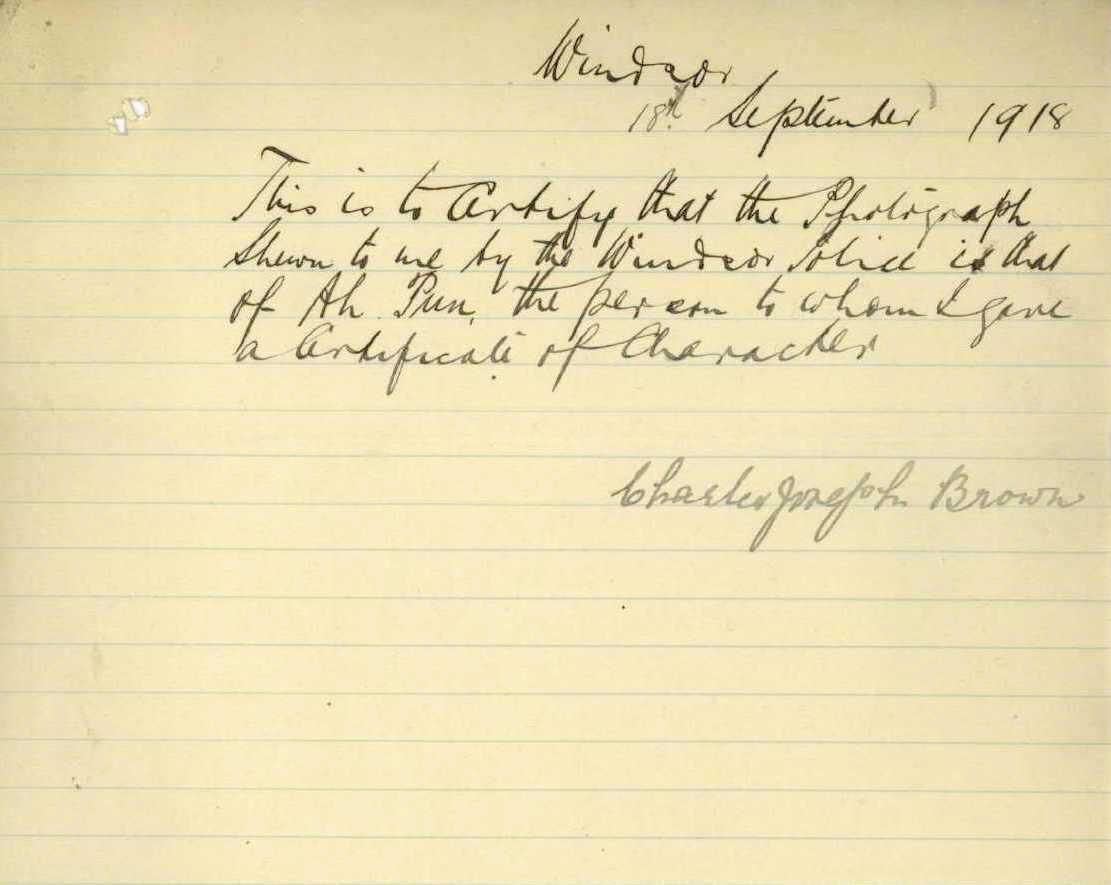 Windsor
18th September 1918
This is to Certify that the Photograph
Shewn to me by the Windsor Police is that
of Ah Pun, the person to whom I gave
a Certificate of Character
Charles Joseph Brown